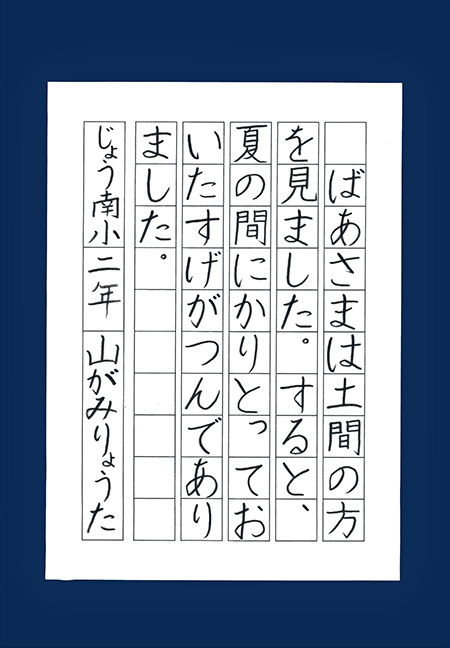 ばあさまは土間の方
を見ました。すると、
夏の間にかりとってお
いたすげがつんであり
ました。
じょう南小二年 山がみりょうた